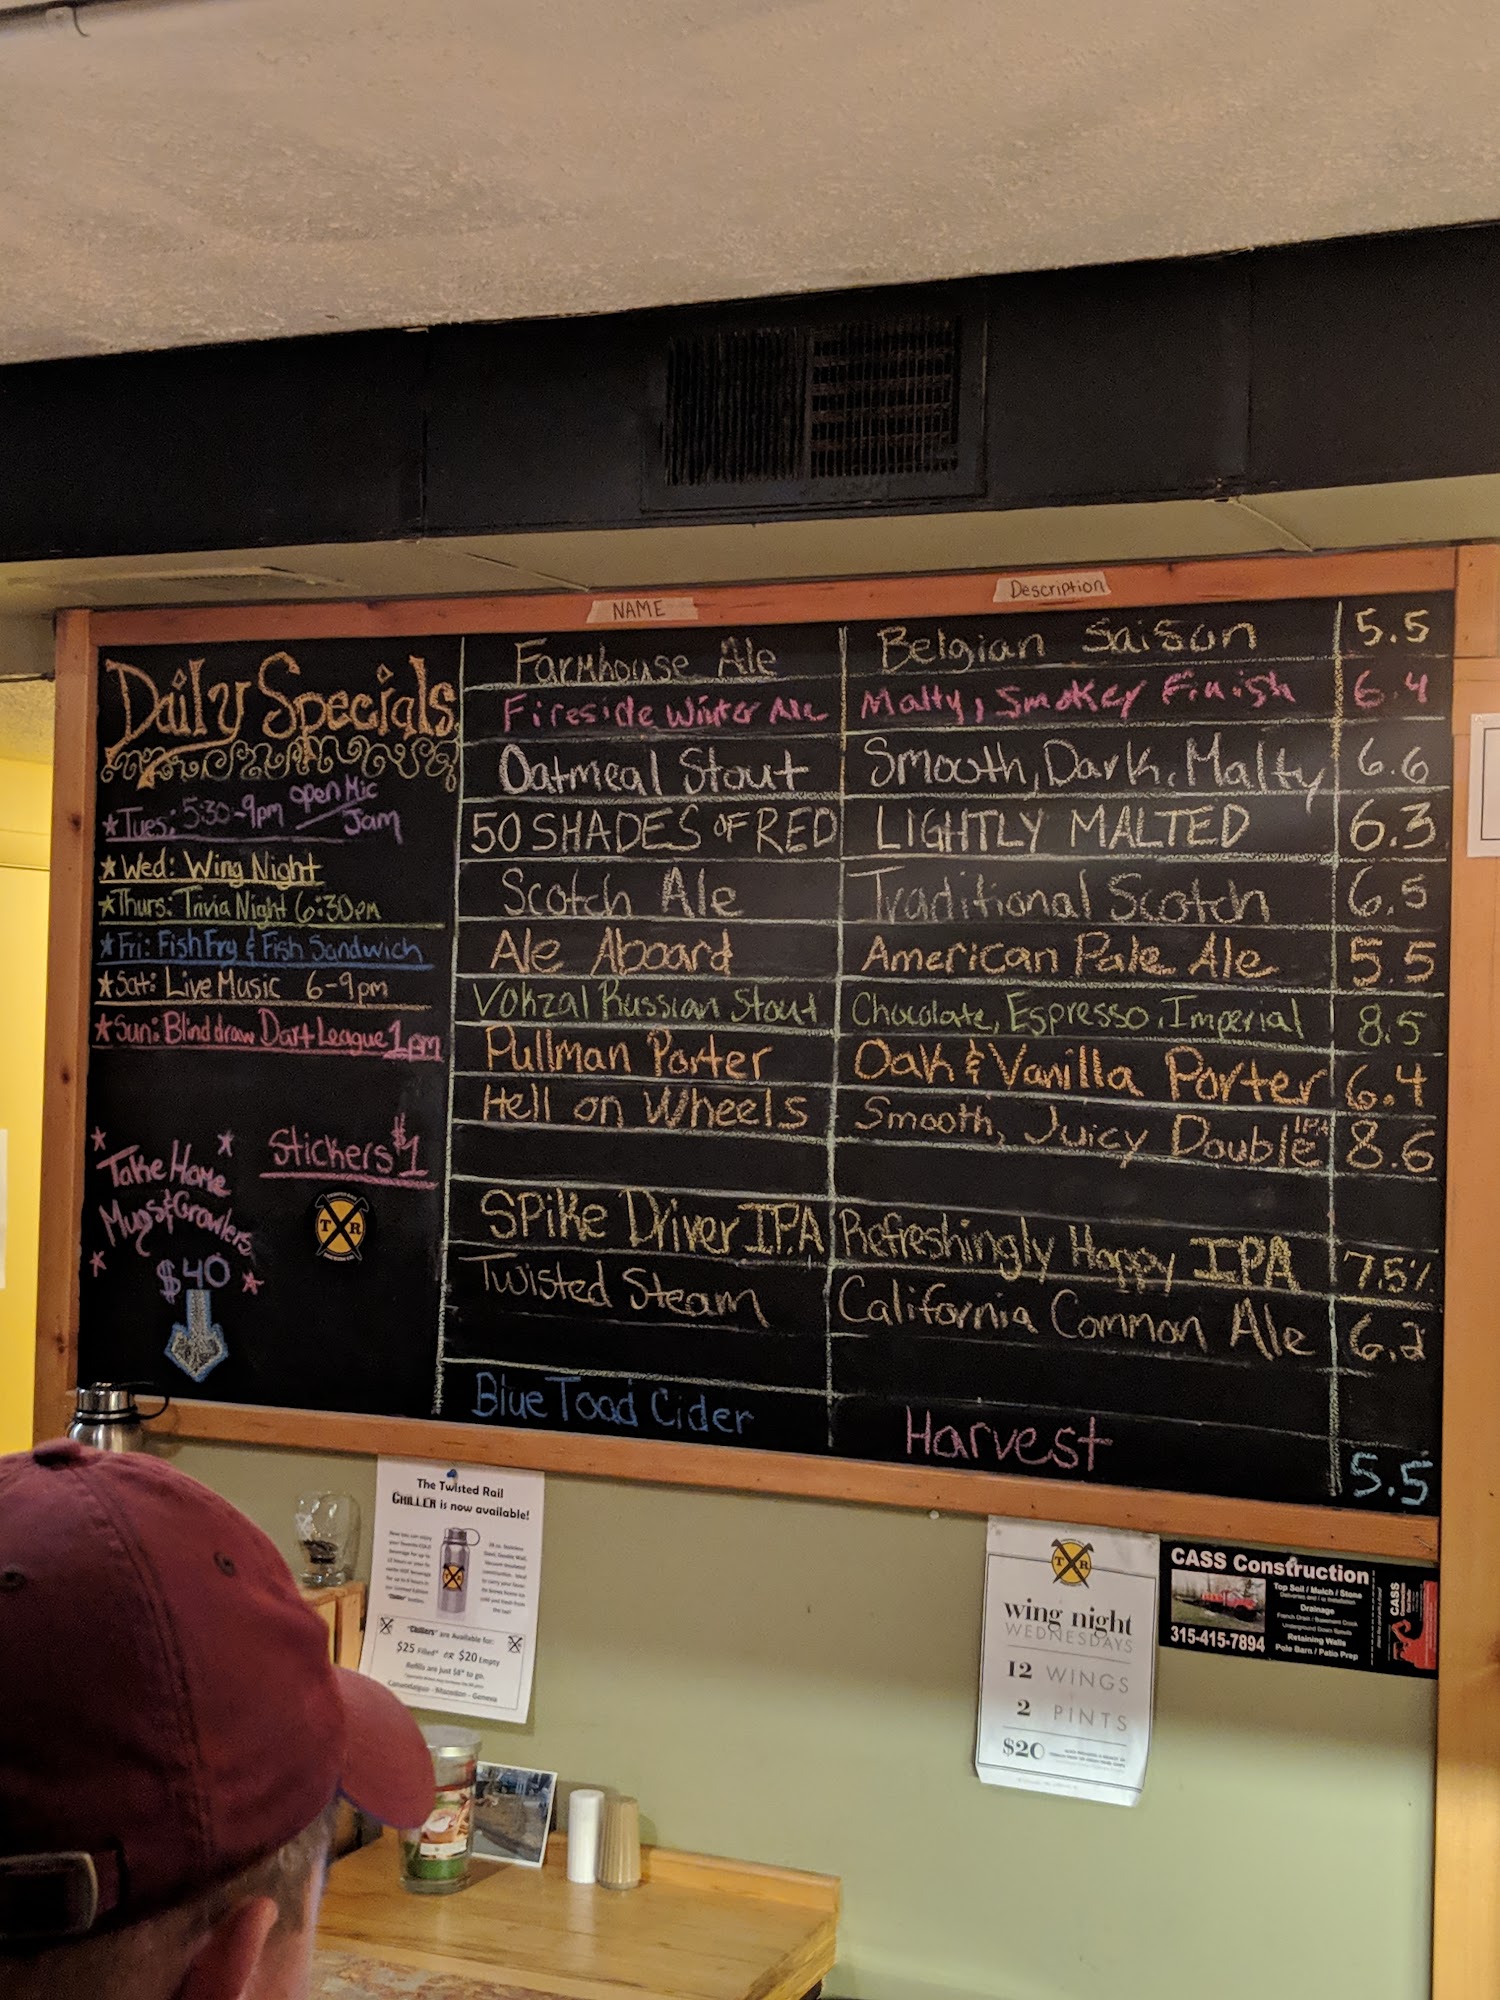 NAME
Description
Daily Specials
★Tues: 5:30-9pm open Mic Jam
★Wed: Wing Night
★Thurs: Trivia Night 6:30pm
★Fri: Fish Fry & Fish Sandwich
★Sat: Live Music 6-9pm
★Sun: Blind draw Dart League 1pm
Take Home
Mugs & Growlers
$40
Stickers $1
T R
Farmhouse Ale Belgian Saison 5.5
Fireside Winter Ale Malty, Smokey Finish 6.4
Oatmeal Stout Smooth, Dark, Malty 6.6
50 SHADES OF RED LIGHTLY MALTED 6.3
Scotch Ale Traditional Scotch 6.5
Ale Aboard American Pale Ale 5.5
Vokzal Russian Stout Chocolate, Espresso, Imperial 8.5
Pullman Porter Oak & Vanilla Porter 6.4
Hell on Wheels Smooth, Juicy Double IPA 8.6
Spike Driver IPA Refreshingly Hoppy IPA 7.5%
Twisted Steam California Common Ale 6.2
Blue Toad Cider Harvest 5.5
The Twisted Rail
CHILLER is now available!
"Chillers" are Available for:
$25 Filled* OR $20 Empty
Refills are just $8* to go.
Canandaigua - Macedon - Geneva
T R
wing night
WEDNESDAYS
12 WINGS
2 PINTS
$20
CASS Construction
Top Soil / Mulch / Stone
Drainage
French Drain / Basement Crock
Underground Down Spouts
Retaining Walls
Pole Barn / Patio Prep
315-415-7894
CASS